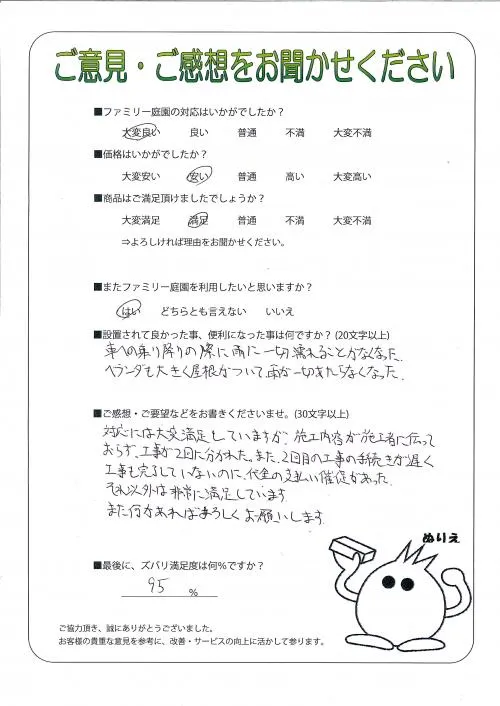 ご意見・ご感想をお聞かせください
■ファミリー庭園の対応はいかがでしたか？
大変良い 良い 普通 不満 大変不満
■価格はいかがでしたか？
大変安い 安い 普通 高い 大変高い
■商品はご満足頂けましたでしょうか？
大変満足 満足 普通 不満 大変不満
⇒よろしければ理由をお聞かせください。
■またファミリー庭園を利用したいと思いますか？
はい どちらとも言えない いいえ
■設置されて良かった事、便利になった事は何ですか？(20文字以上)
車への乗り降りの際に雨に一切濡れることがなくなった。
ベランダも大きく屋根がついて、雨が一切あたらなくなった。
■ご感想・ご要望などをお書きくださいませ。(30文字以上)
対応には大変満足していますが、施工内容が施工者に伝って
おらず、工事が2回に分かれた。また、2回目の工事の手続きが遅く
工事も完了していないのに、代金の支払い催促があった。
それ以外は非常に満足しています。
また何かあればよろしくお願いします。
ぬりえ
■最後に、ズバリ満足度は何％ですか？
95 ％
ご協力頂き、誠にありがとうございました。
お客様の貴重な意見を参考に、改善・サービスの向上に活かして参ります。